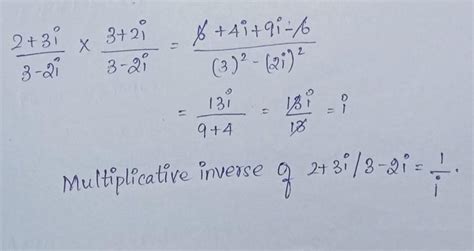 2+3i/3-2i × 3+2i/3-2i = 6+4i+9i-6/(3)²-(2i)²
= 13i/9+4 = 13i/13 = i
Multiplicative inverse of 2+3i/3-2i = 1/i.